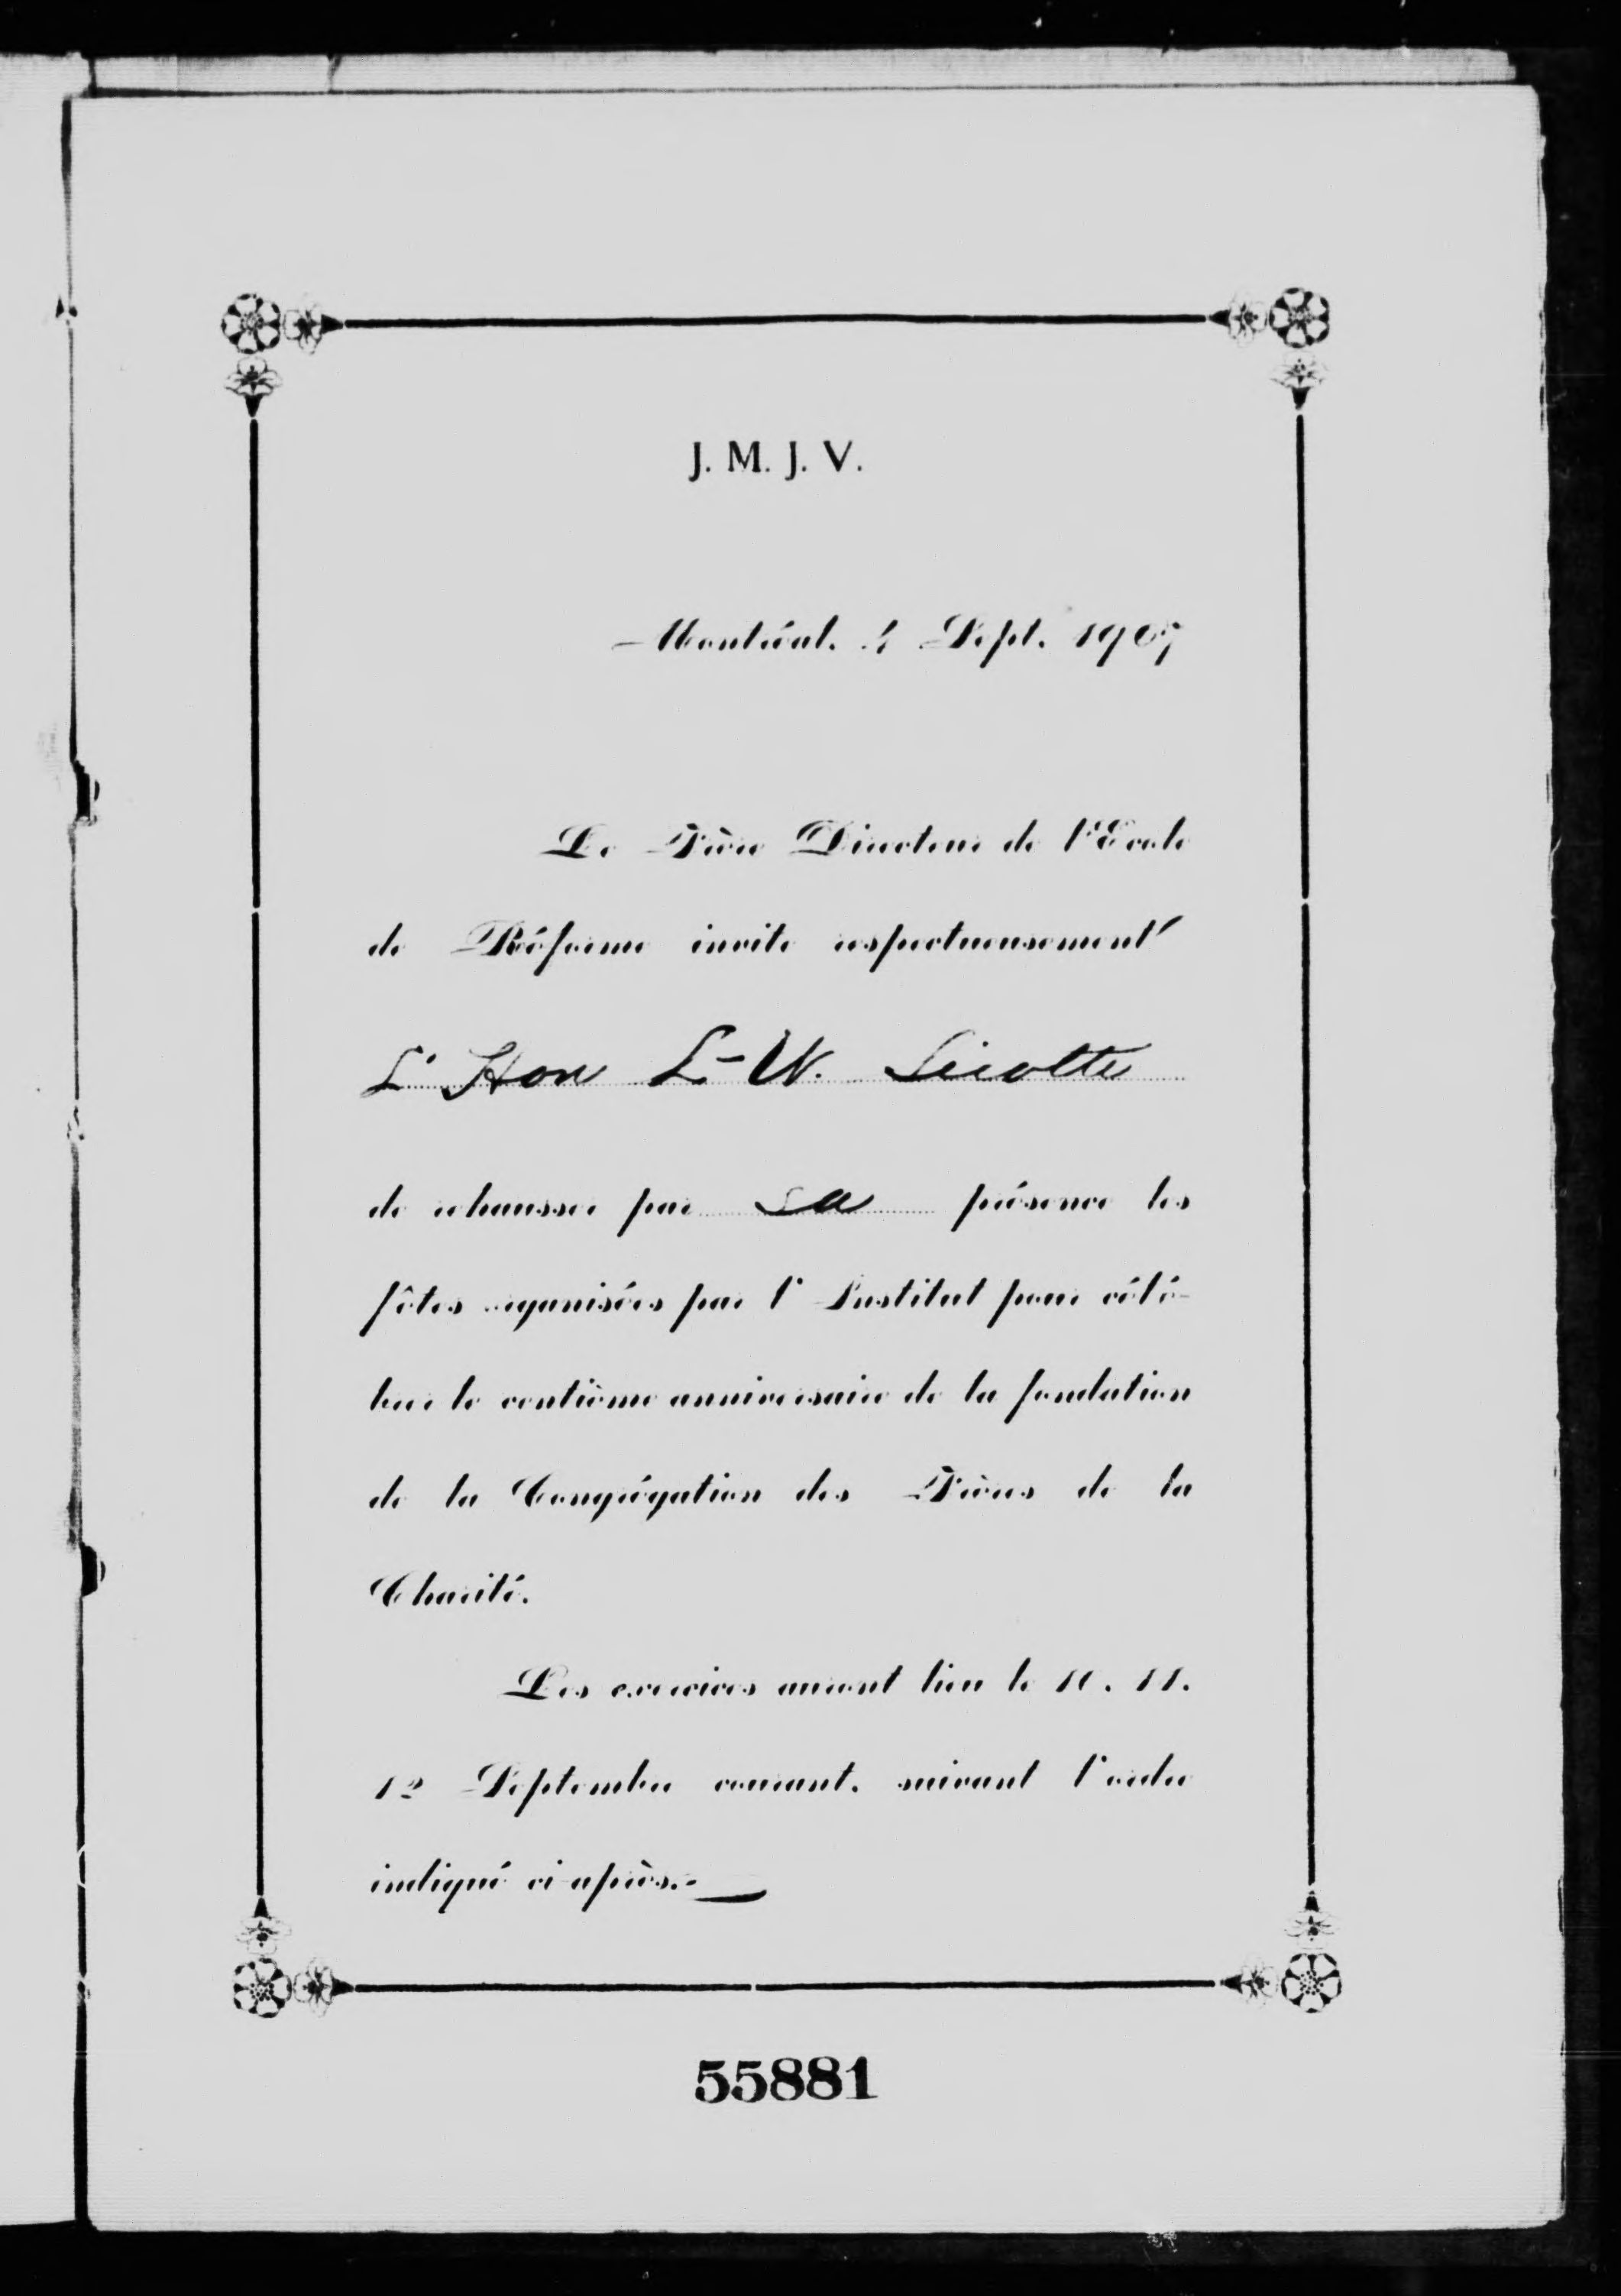 J. M. J. V.
Montréal, 4 Sept. 1907
Le Frère Directeur de l'Ecole
de Réforme invite respectueusement
L'Hon L.-W. Sicotte
de rehausser par sa présence les
fêtes organisées par l'Institut pour célé-
brer le centième anniversaire de la fondation
de la Congrégation des Frères de la
Charité.
Les exercices auront lieu le 10, 11,
12 Septembre courant, suivant l'ordre
indiqué ci-après.-
55881